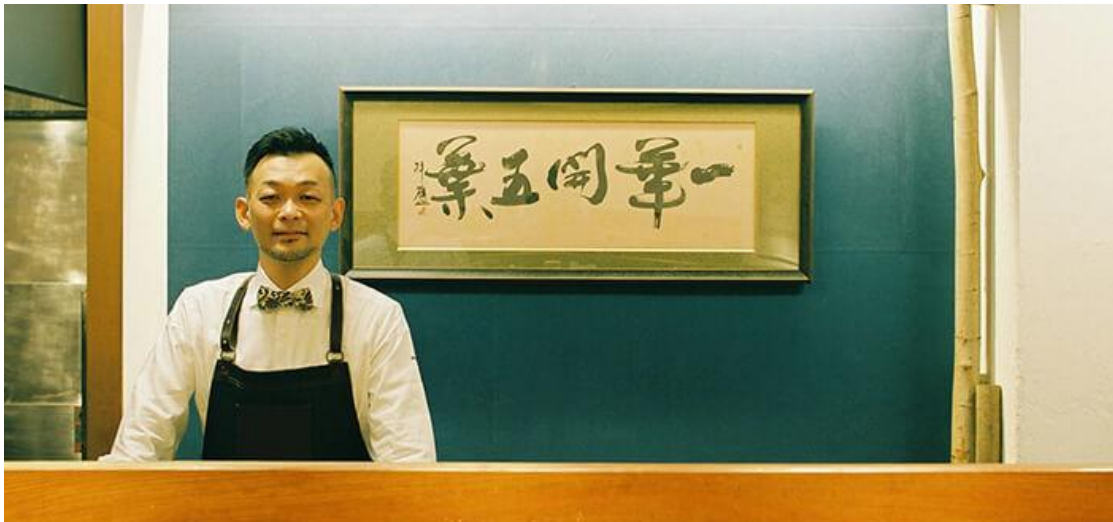 一華開五葉